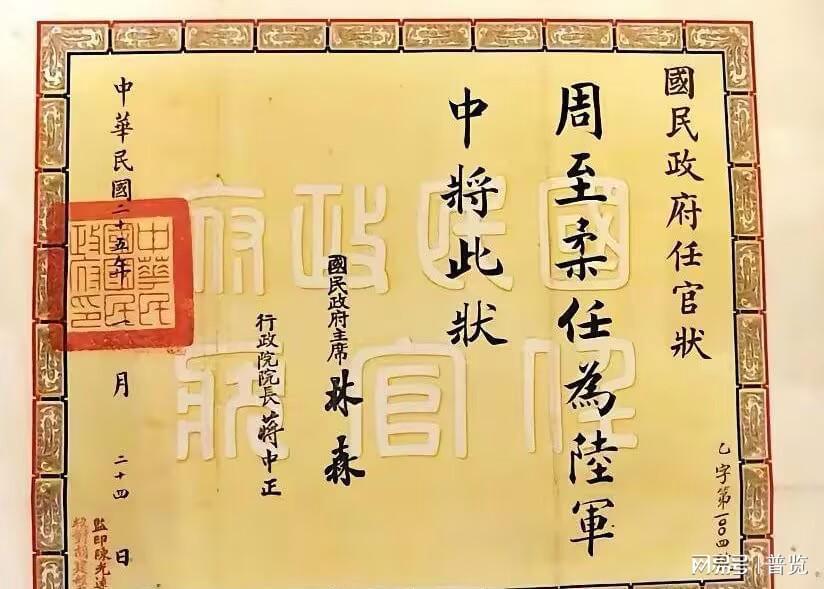 國民政府任官狀
乙字第一〇〇四
周至柔任為陸軍
中將此狀
國民政府主席 林森
行政院院長 蔣中正
中華民國二十五年 月 二十四 日
中華民
國國民
政府印
國民政府
任官狀
監印陳光
校對胡
网易号 | 普览